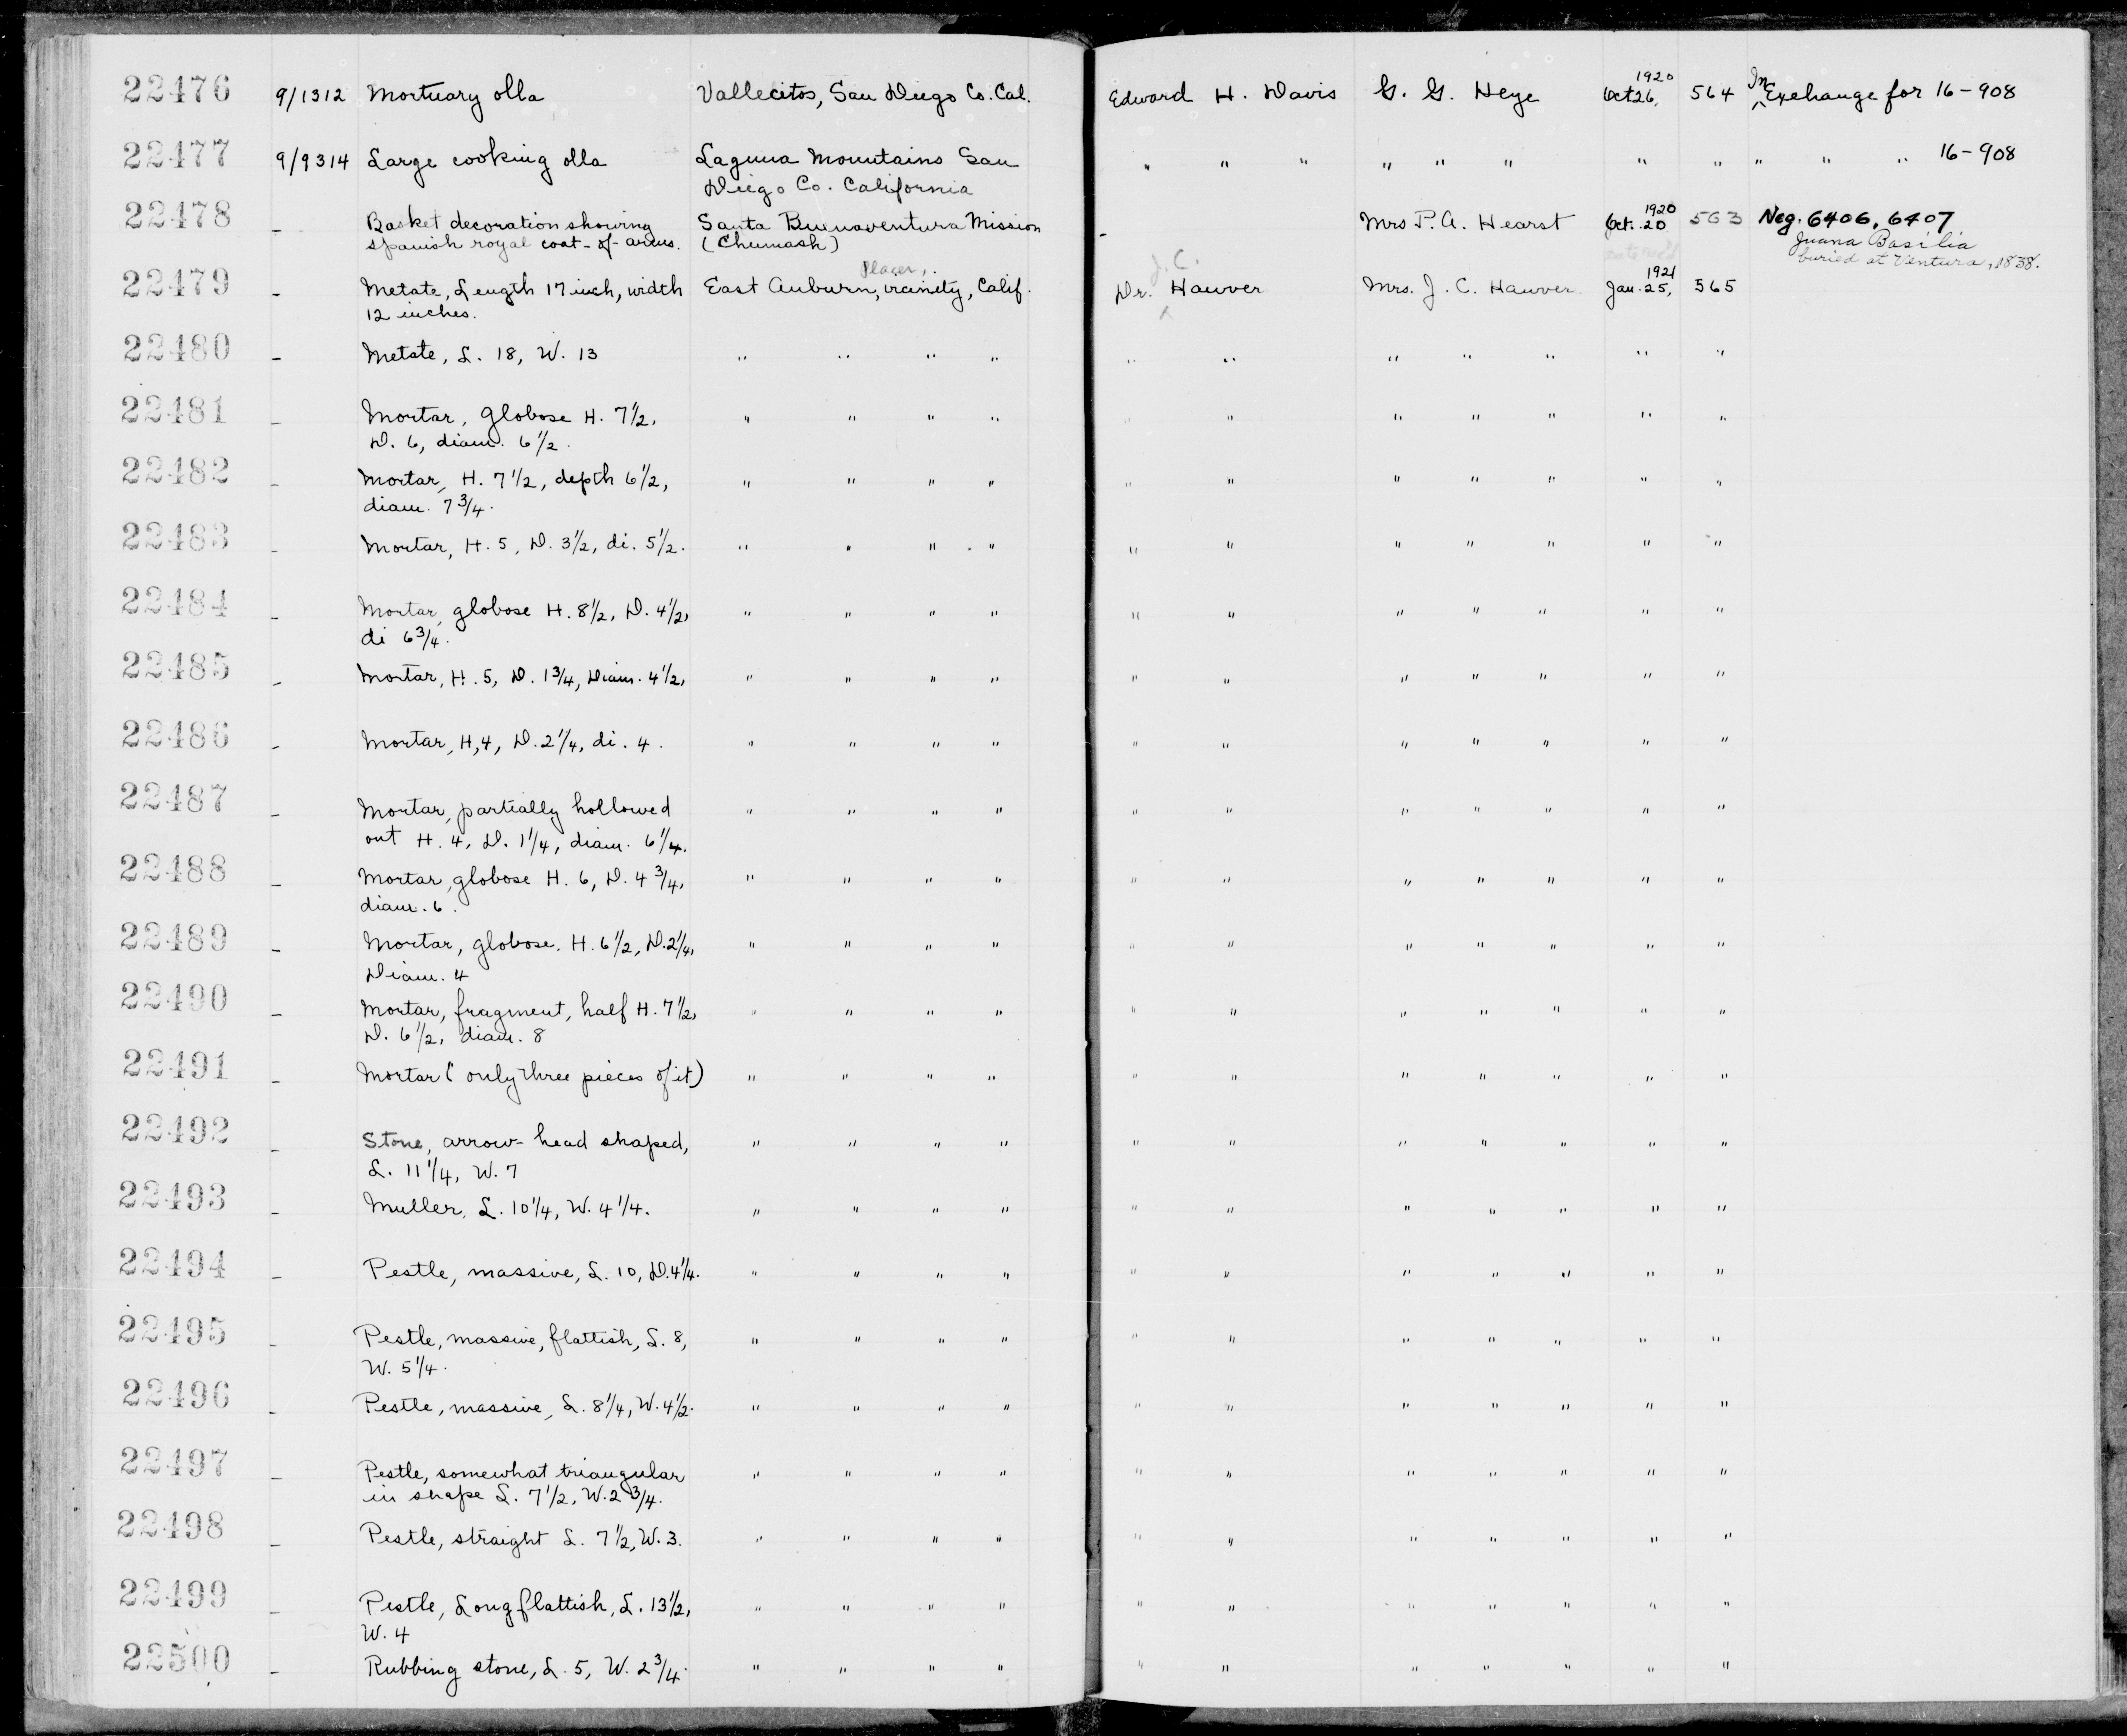 22476 9/1312 Mortuary olla Vallecitos, San Diego Co. Cal. Edward H. Davis G. G. Heye Oct 26, 1920 564 In Exchange for 16-908
22477 9/9314 Large cooking olla Laguna Mountains San " " " " " " " " " " " 16-908
Diego Co. California
22478 - Basket decoration showing Santa Buenaventura Mission - Mrs P. A. Hearst Oct. 20 1920 563 Neg. 6406, 6407
spanish royal coat-of-arms. (Chumash) Juana Basilia
buried at Ventura, 1838.
22479 - Metate, Length 17 inch, width East Auburn, Placer, vicinity, Calif. Dr. J. C. Hauver Mrs. J. C. Hauver Jan. 25, 1921 565
12 inches.
22480 - Metate, L. 18, W. 13 " " " " " " " " " " "
22481 - Mortar, globose H. 7 1/2, " " " " " " " " " " "
D. 6, diam. 6 1/2.
22482 - Mortar, H. 7 1/2, depth 6 1/2, " " " " " " " " " " "
diam. 7 3/4.
22483 - Mortar, H. 5, D. 3 1/2, di. 5 1/2. " " " " " " " " " " "
22484 - Mortar, globose H. 8 1/2, D. 4 1/2, " " " " " " " " " " "
di 6 3/4.
22485 - Mortar, H. 5, D. 1 3/4, Diam. 4 1/2, " " " " " " " " " " "
22486 - Mortar, H, 4, D. 2 1/4, di. 4. " " " " " " " " " " "
22487 - Mortar, partially hollowed " " " " " " " " " " "
out H. 4, D. 1 1/4, diam. 6 1/4.
22488 - Mortar, globose H. 6, D. 4 3/4, " " " " " " " " " " "
diam. 6.
22489 - Mortar, globose. H. 6 1/2, D. 2 1/4, " " " " " " " " " " "
Diam. 4
22490 - Mortar, fragment, half H. 7 1/2, " " " " " " " " " " "
D. 6 1/2, diam. 8
22491 - Mortar (only three pieces of it) " " " " " " " " " " "
22492 - Stone, arrow-head shaped, " " " " " " " " " " "
L. 11 1/4, W. 7
22493 - Muller, L. 10 1/4, W. 4 1/4. " " " " " " " " " " "
22494 - Pestle, massive, L. 10, D. 4 1/4. " " " " " " " " " " "
22495 - Pestle, massive, flattish, L. 8, " " " " " " " " " " "
W. 5 1/4.
22496 - Pestle, massive, L. 8 1/4, W. 4 1/2. " " " " " " " " " " "
22497 - Pestle, somewhat triangular " " " " " " " " " " "
in shape L. 7 1/2, W. 2 3/4.
22498 - Pestle, straight L. 7 1/2, W. 3. " " " " " " " " " " "
22499 - Pestle, Long flattish, L. 13 1/2, " " " " " " " " " " "
W. 4
22500 - Rubbing stone, L. 5, W. 2 3/4. " " " " " " " " " " "